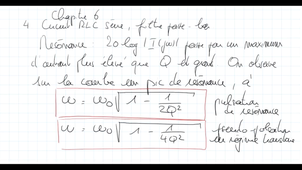 Chapitre 6
4 Circuit RLC série, filtre passe-bas
Résonance 20 log |I| qui passe par un maximum
d'autant plus élevé que Q est grand On observe
sur la courbe un pic de résonance, à
ω = ω₀ √(1 - 1/(2Q²)) pulsation de résonance
ω = ω₀ √(1 - 1/(4Q²)) pseudo-pulsation du régime